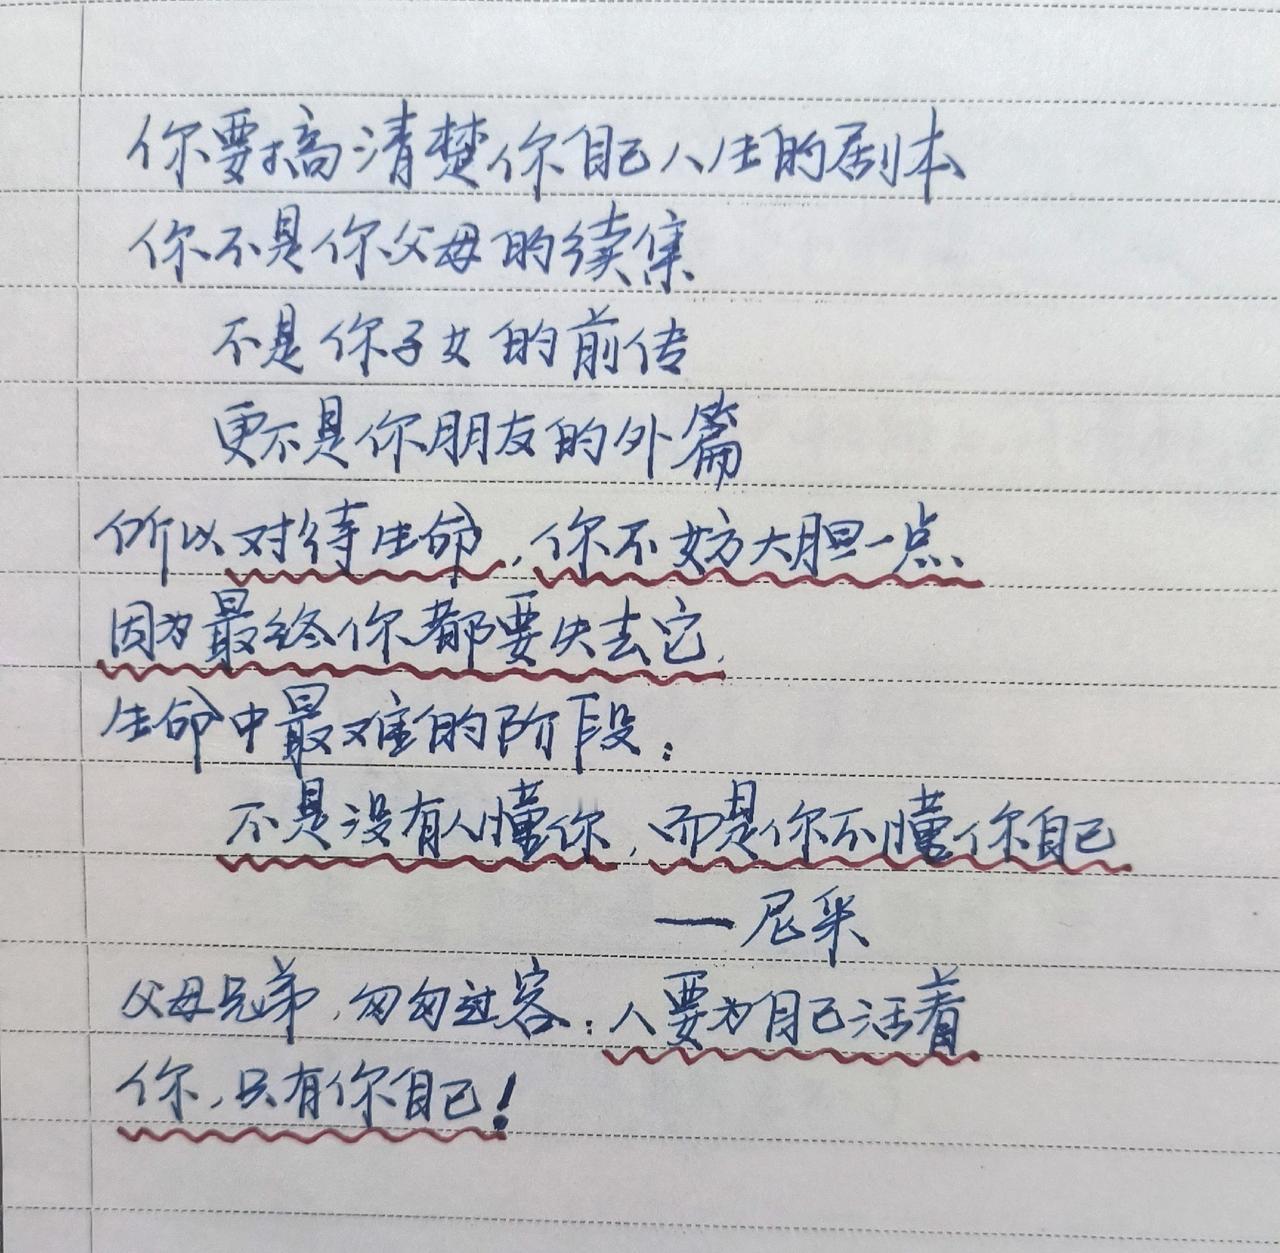 你要搞清楚你自己人生的剧本
你不是你父母的续集
不是你子女的前传
更不是你朋友的外篇
所以对待生命，你不妨大胆一点、
因为最终你都要失去它，
生命中最难的阶段：
不是没有人懂你，而是你不懂你自己
——尼采
父母兄弟，匆匆过客：人要为自己活着
你，只有你自己！